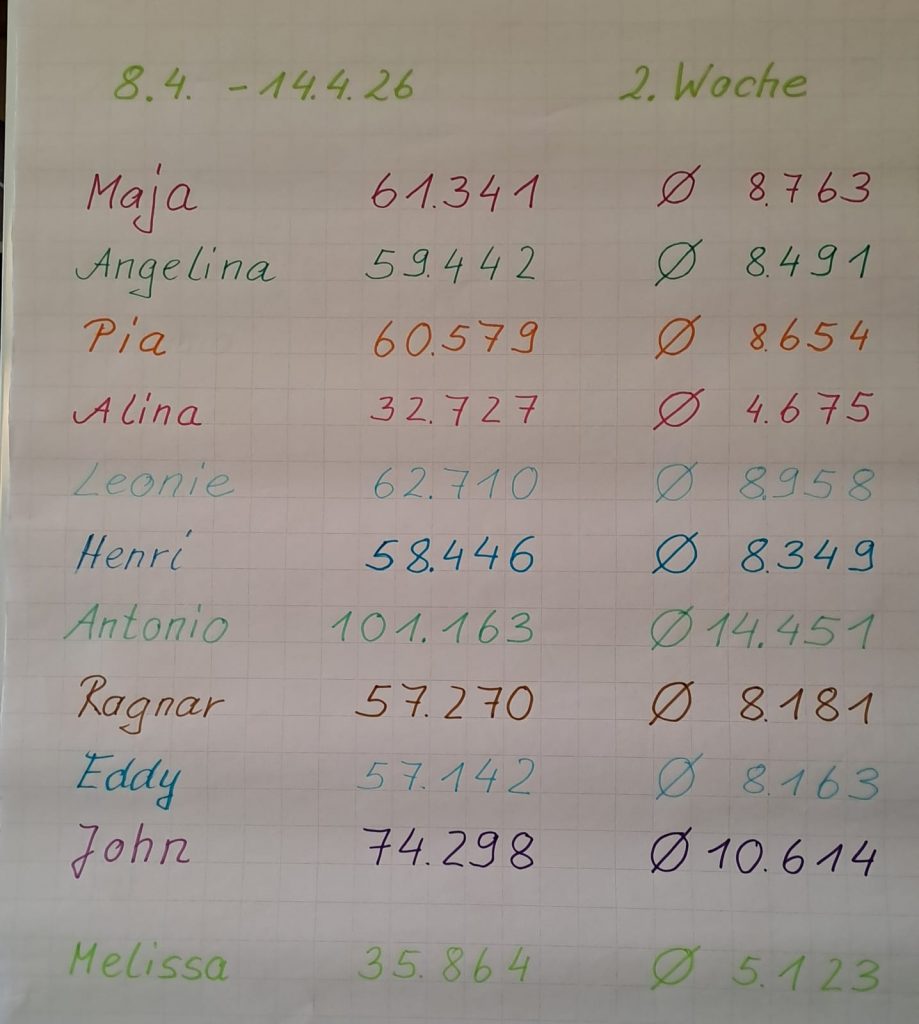 8.4. - 14.4.26 2. Woche
Maja 61.341 Ø 8.763
Angelina 59.442 Ø 8.491
Pia 60.579 Ø 8.654
Alina 32.727 Ø 4.675
Leonie 62.710 Ø 8.958
Henri 58.446 Ø 8.349
Antonio 101.163 Ø 14.451
Ragnar 57.270 Ø 8.181
Eddy 57.142 Ø 8.163
John 74.298 Ø 10.614
Melissa 35.864 Ø 5.123